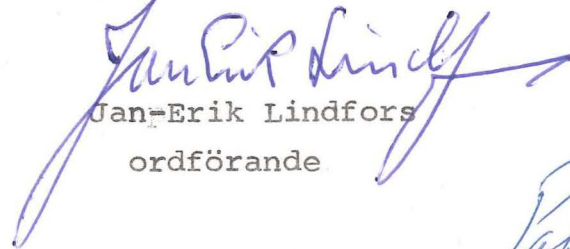 Jan-Erik Lindf
Jan-Erik Lindfors
ordförande